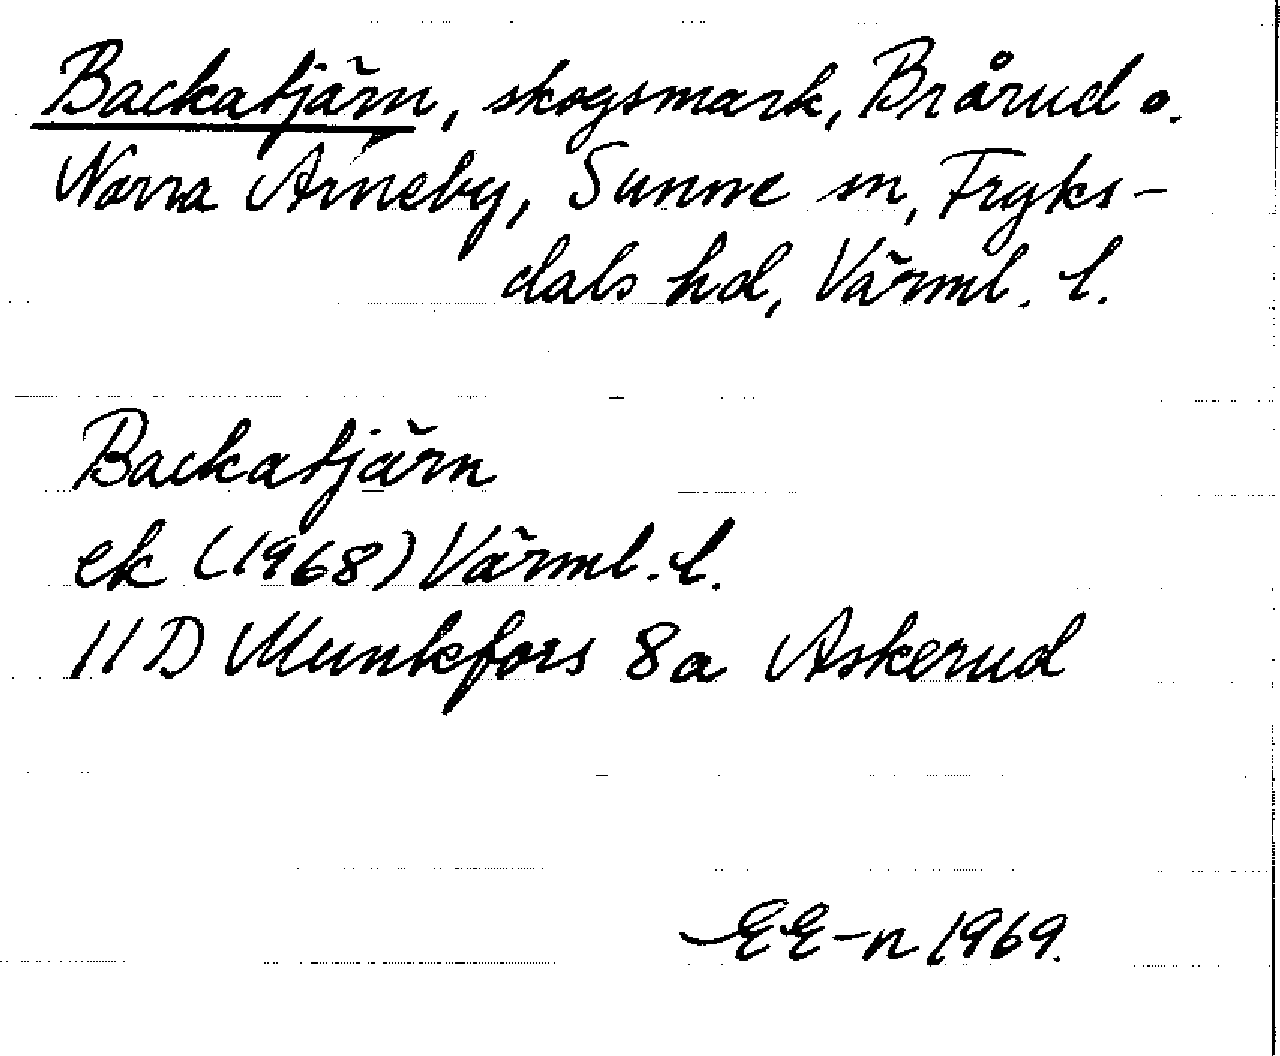 Backatjärn, skogsmark, Brårud o.
Norra Arneby, Sunne sn, Fryks-
dals hd, Värml. l.
Backatjärn
ek (1968) Värml. l.
11D Munkfors 8a Askerud
EE-n 1969.